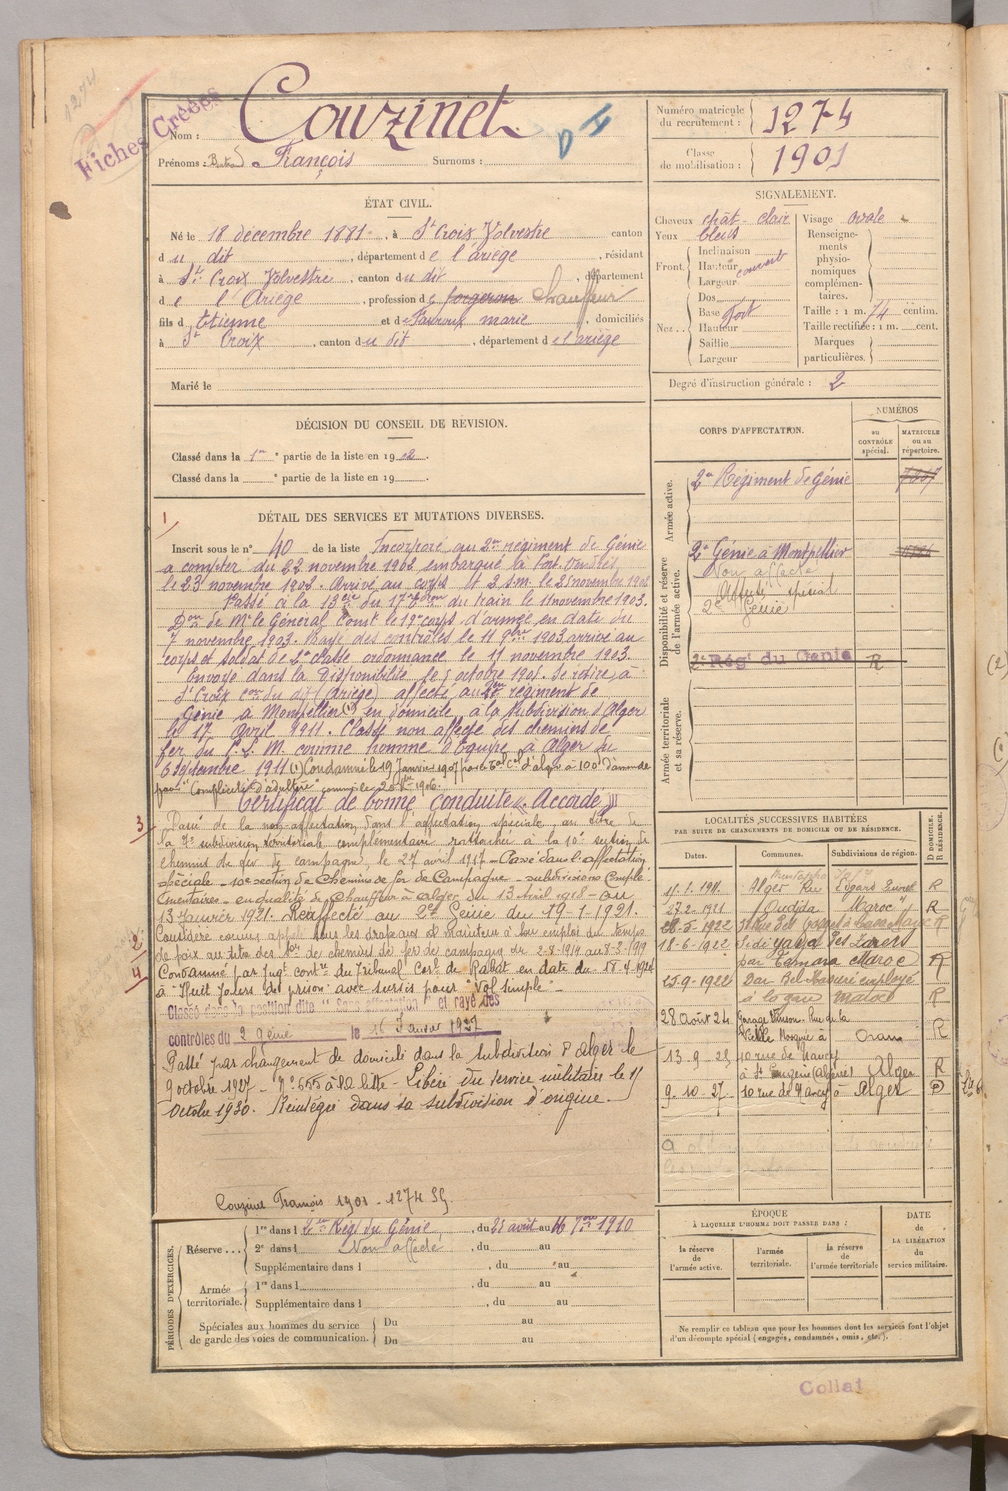 1274
Fiches Créées
Nom : Couzinet
Prénoms : Bertrand François Surnoms :
Numéro matricule du recrutement : 1274
Classe de mobilisation : 1901
ÉTAT CIVIL.
Né le 18 décembre 1881, à St Croix Volvestre canton
du dit, département de l'ariège, résidant
à Ste Croix Volvestre, canton du dit, département
de l'Ariège, profession de forgeron chauffeur
fils d'Etienne et de Favroux marie, domiciliés
à St Croix, canton du dit, département de l'ariège
Marié le
SIGNALEMENT.
Cheveux chât-clair
Yeux bleus
Front. Inclinaison
Hauteur
Largeur
couvert
Nez... Dos
Base fort
Hauteur
Saillie
Largeur
Visage ovale
Renseignements physionomiques complémentaires.
Taille : 1 m. 74 centim.
Taille rectifiée : 1 m. cent.
Marques particulières.
Degré d'instruction générale : 2
DÉCISION DU CONSEIL DE RÉVISION.
Classé dans la 1re partie de la liste en 1902.
Classé dans la e partie de la liste en 19
CORPS D'AFFECTATION.
NUMÉROS
au CONTRÔLE spécial.
MATRICULE ou au répertoire.
Armée active.
2e Régiment de Génie
Disponibilité et réserve de l'armée active.
2e Génie à Montpellier
Non affecté
Affecté spécial
2e Génie
2e Rég' du Génie R
Armée territoriale et sa réserve.
DÉTAIL DES SERVICES ET MUTATIONS DIVERSES.
1
Inscrit sous le n° 40 de la liste Incorporé au 2me régiment de Génie
à compter du 22 novembre 1902 embarqué à Port-Vendres
le 23 novembre 1902. Arrivé au corps et 2 s.m. le 25 novembre 1902
Passé à la 13eme Cie du 17e Eron du train le 11 novembre 1903.
Don de Mr le Général Comt le 17e corps d'armée en date du
7 novembre 1903. Rayé des contrôles le 11 9bre 1903 arrivé au
corps et soldat de 2e classe ordonnance le 11 novembre 1903.
Envoyé dans la Disponibilité le octobre 1905. Se retire à
St Croix con du dit (Ariège) affecté au 2me régiment de
Génie à Montpellier (1) en domicile à la subdivision d'Alger
le 17 avril 1911. Classé non affecté des chemins de
fer du P.L.M. comme homme d'Equipe à Alger du
6 septembre 1911 (1) Condamné le 19 janvier 1907 par le d'alger à 100f d'amende
pour "Complicité d'adultère" commis le 20 1906.
Certificat de bonne conduite « Accordé »
3
Passé de la non-affectation dans l'affectation spéciale, au titre de
la 7e subdivision territoriale complémentaire rattachée à la 10e section de
chemins de fer de campagne, le 27 avril 1917 - Passé dans l'affectation
spéciale - 10e section de Chemins de fer de Campagne - subdivisions Complé-
mentaires - en qualité de chauffeur à alger du 13 Avril 1918 - au
13 Janvier 1921. Réaffecté au 2e Génie du 19-1-1921.
2
Considéré comme appelé sous les drapeaux et maintenu à son emploi du temps
de paix au titre des Son de chemins de fer de campagne du 2-8-1914 au 8-3-1919
4
Condamné par Jugt contre du Tribunal Corl de Rabat en date du 18-4-1924
à "Huit Jours de prison" avec sursis pour "Vol simple"
Classé dans la position dite "Sans affectation" et rayé des
contrôles du 2 Génie le 16 Janvier 1927
Passé par changement de domicile dans la subdivision d'Alger le
9 octobre 1927 - N° 655 à la liste - Libéré du service militaire le 15
Octobre 1930. Réintégré dans sa subdivision d'origine.
Couzinet François 1901 - 1274 SG.
LOCALITÉS SUCCESSIVES HABITÉES
PAR SUITE DE CHANGEMENTS DE DOMICILE OU DE RÉSIDENCE.
Dates. Communes. Subdivisions de région. D DOMICILE. R RÉSIDENCE.
Mustapha
11-1-1911. Alger Rue Edgard Quinet R
27-2-1921 Oudjda Maroc R
28-5-1922 à Casablanca R
18-6-1922 Sidi Yahya des Zaers
par Temara Maroc R
25-9-1922 Dar Bel Hamri employé
à la gare Maroc R
28 Août 24 Garage Vinson. Rue de la
Vieille Mosquée à Oran R
13-9-25 10 rue de Nancy
à St Eugène (Algérie) Alger R
9-10-27 10 rue de Nancy à Alger D
PÉRIODES D'EXERCICES.
Réserve...
1re dans l 2me Régt du Génie, du 25 avril au 16 1910
2e dans l Non affecté, du au
Supplémentaire dans l , du au
Armée territoriale.
1re dans l , du au
Supplémentaire dans l , du au
Spéciales aux hommes du service de garde des voies de communication.
Du au
Du au
ÉPOQUE
À LAQUELLE L'HOMME DOIT PASSER DANS :
la réserve de l'armée active.
l'armée territoriale.
la réserve de l'armée territoriale
DATE de LA LIBÉRATION du service militaire.
Ne remplir ce tableau que pour les hommes dont les services font l'objet
d'un décompte spécial (engagés, condamnés, omis, etc.).
Collat